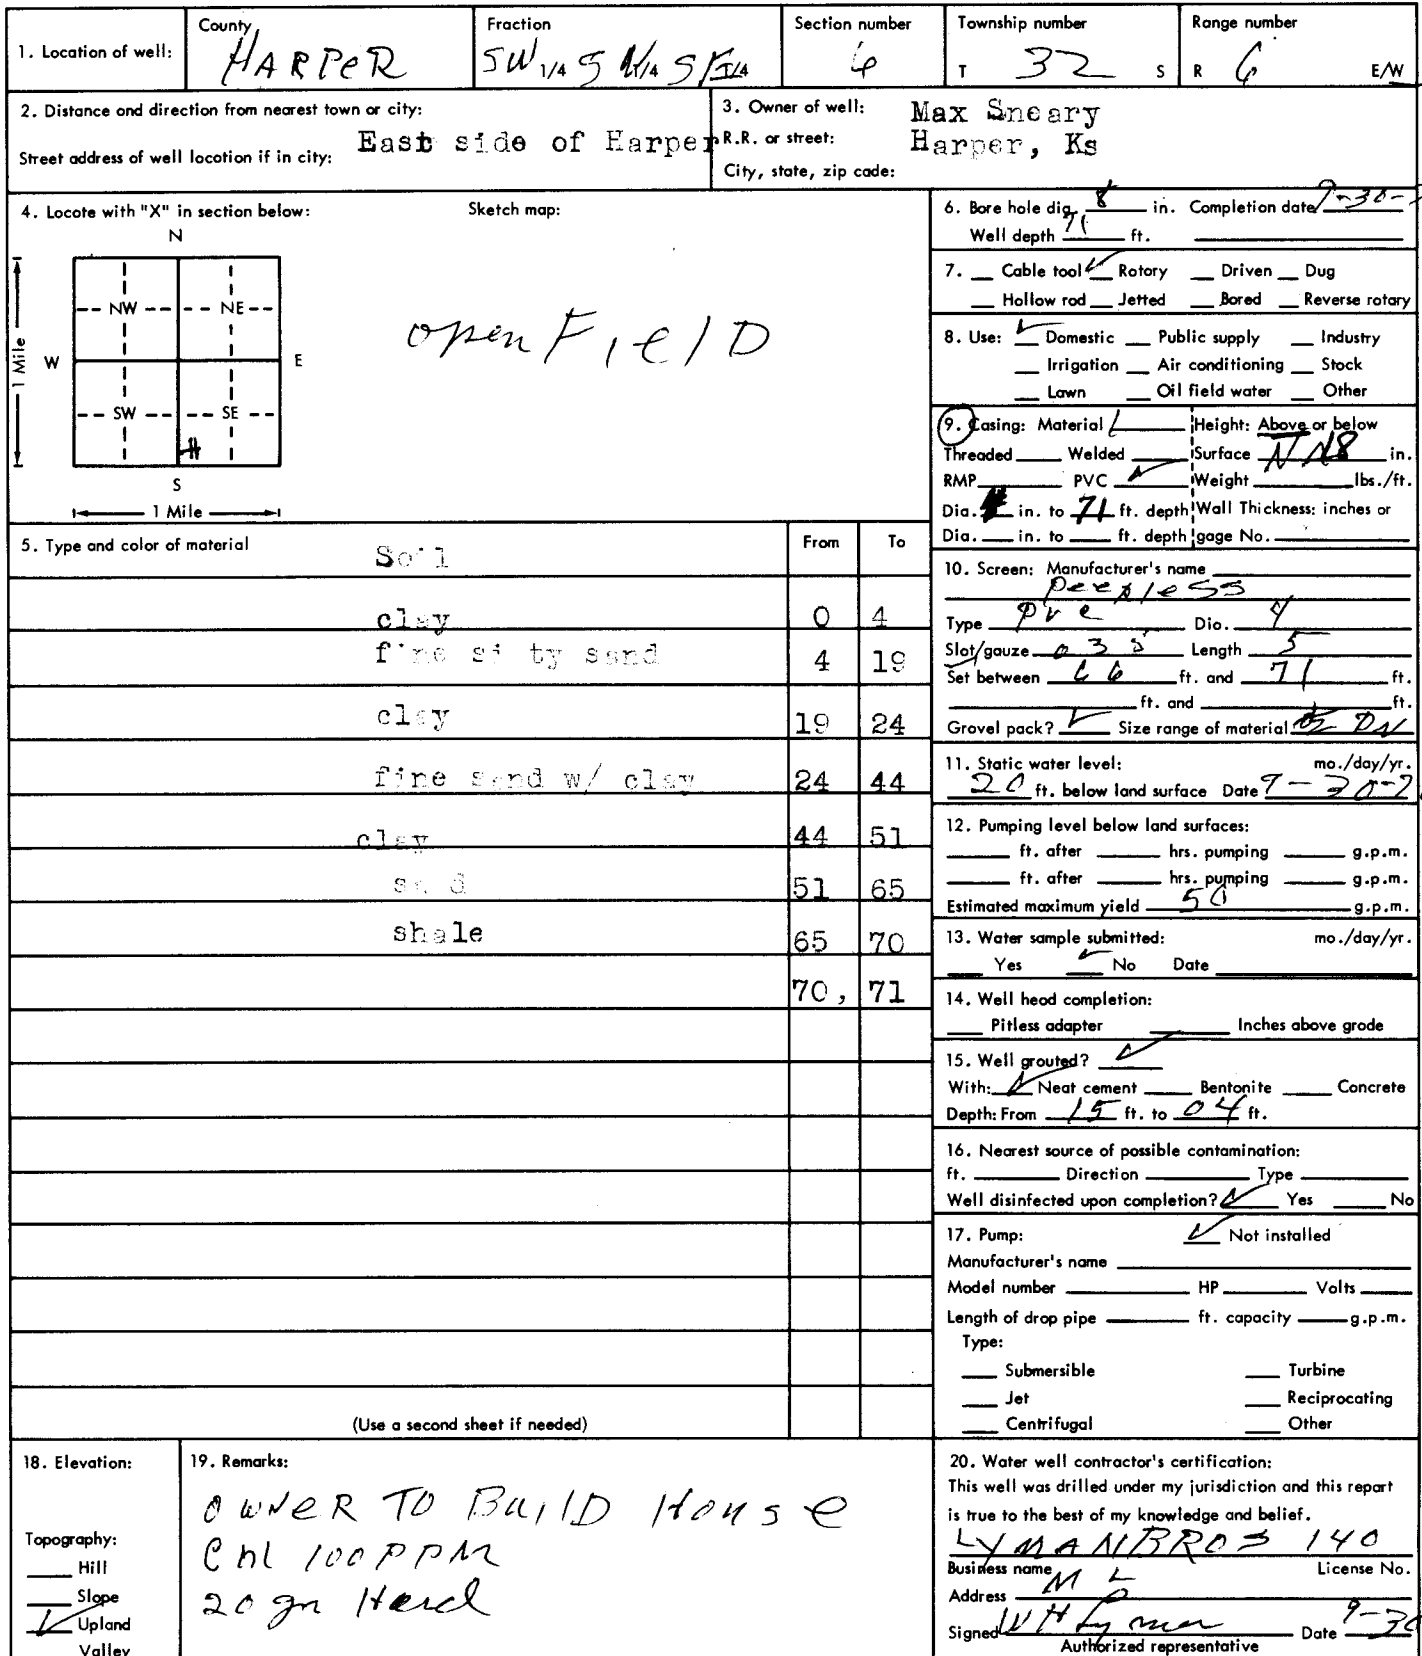 1. Location of well:
County
HARPeR
Fraction
SW 1/4 SW 1/4 SE 1/4
Section number
6
Township number
T 32 S
Range number
R 6 E/W
2. Distance and direction from nearest town or city:
Street address of well location if in city:
East side of Harper
3. Owner of well:
R.R. or street:
City, state, zip code:
Max Sneary
Harper, Ks
4. Locate with "X" in section below:
Sketch map:
N
NW NE
W E
SW SE
S
1 Mile
1 Mile
open FieLD
5. Type and color of material
From To
Soil
clay 0 4
fine si ty sand 4 19
clay 19 24
fine sand w/ clay 24 44
clay 44 51
sa d 51 65
shale 65 70
70, 71
(Use a second sheet if needed)
6. Bore hole dia. 8 in. Completion date 9-30-
Well depth 71 ft.
7. Cable tool ✓ Rotary Driven Dug
Hollow rod Jetted Bored Reverse rotary
8. Use: ✓ Domestic Public supply Industry
Irrigation Air conditioning Stock
Lawn Oil field water Other
9. Casing: Material Height: Above or below
Threaded Welded Surface in.
RMP PVC ✓ Weight lbs./ft.
Dia. in. to 71 ft. depth Wall Thickness: inches or
Dia. in. to ft. depth gage No.
10. Screen: Manufacturer's name
peerless
Type pvc Dia. 4
Slot/gauze 035 Length 5
Set between 66 ft. and 71 ft.
ft. and ft.
Gravel pack? ✓ Size range of material
11. Static water level: mo./day/yr.
20 ft. below land surface Date 9-30-7
12. Pumping level below land surfaces:
ft. after hrs. pumping g.p.m.
ft. after hrs. pumping g.p.m.
Estimated maximum yield 50 g.p.m.
13. Water sample submitted: mo./day/yr.
Yes ✓ No Date
14. Well head completion:
Pitless adapter Inches above grade
15. Well grouted? ✓
With: ✓ Neat cement Bentonite Concrete
Depth: From 15 ft. to 04 ft.
16. Nearest source of possible contamination:
ft. Direction Type
Well disinfected upon completion? ✓ Yes No
17. Pump: ✓ Not installed
Manufacturer's name
Model number HP Volts
Length of drop pipe ft. capacity g.p.m.
Type:
Submersible Turbine
Jet Reciprocating
Centrifugal Other
18. Elevation:
Topography:
Hill
Slope
✓ Upland
Valley
19. Remarks:
OWNER TO BuilD House
Chl 100 PPM
20 gn Hard
20. Water well contractor's certification:
This well was drilled under my jurisdiction and this report
is true to the best of my knowledge and belief.
LYMAN BROS 140
Business name License No.
Address
Signed WH Lyman Date 9-30
Authorized representative